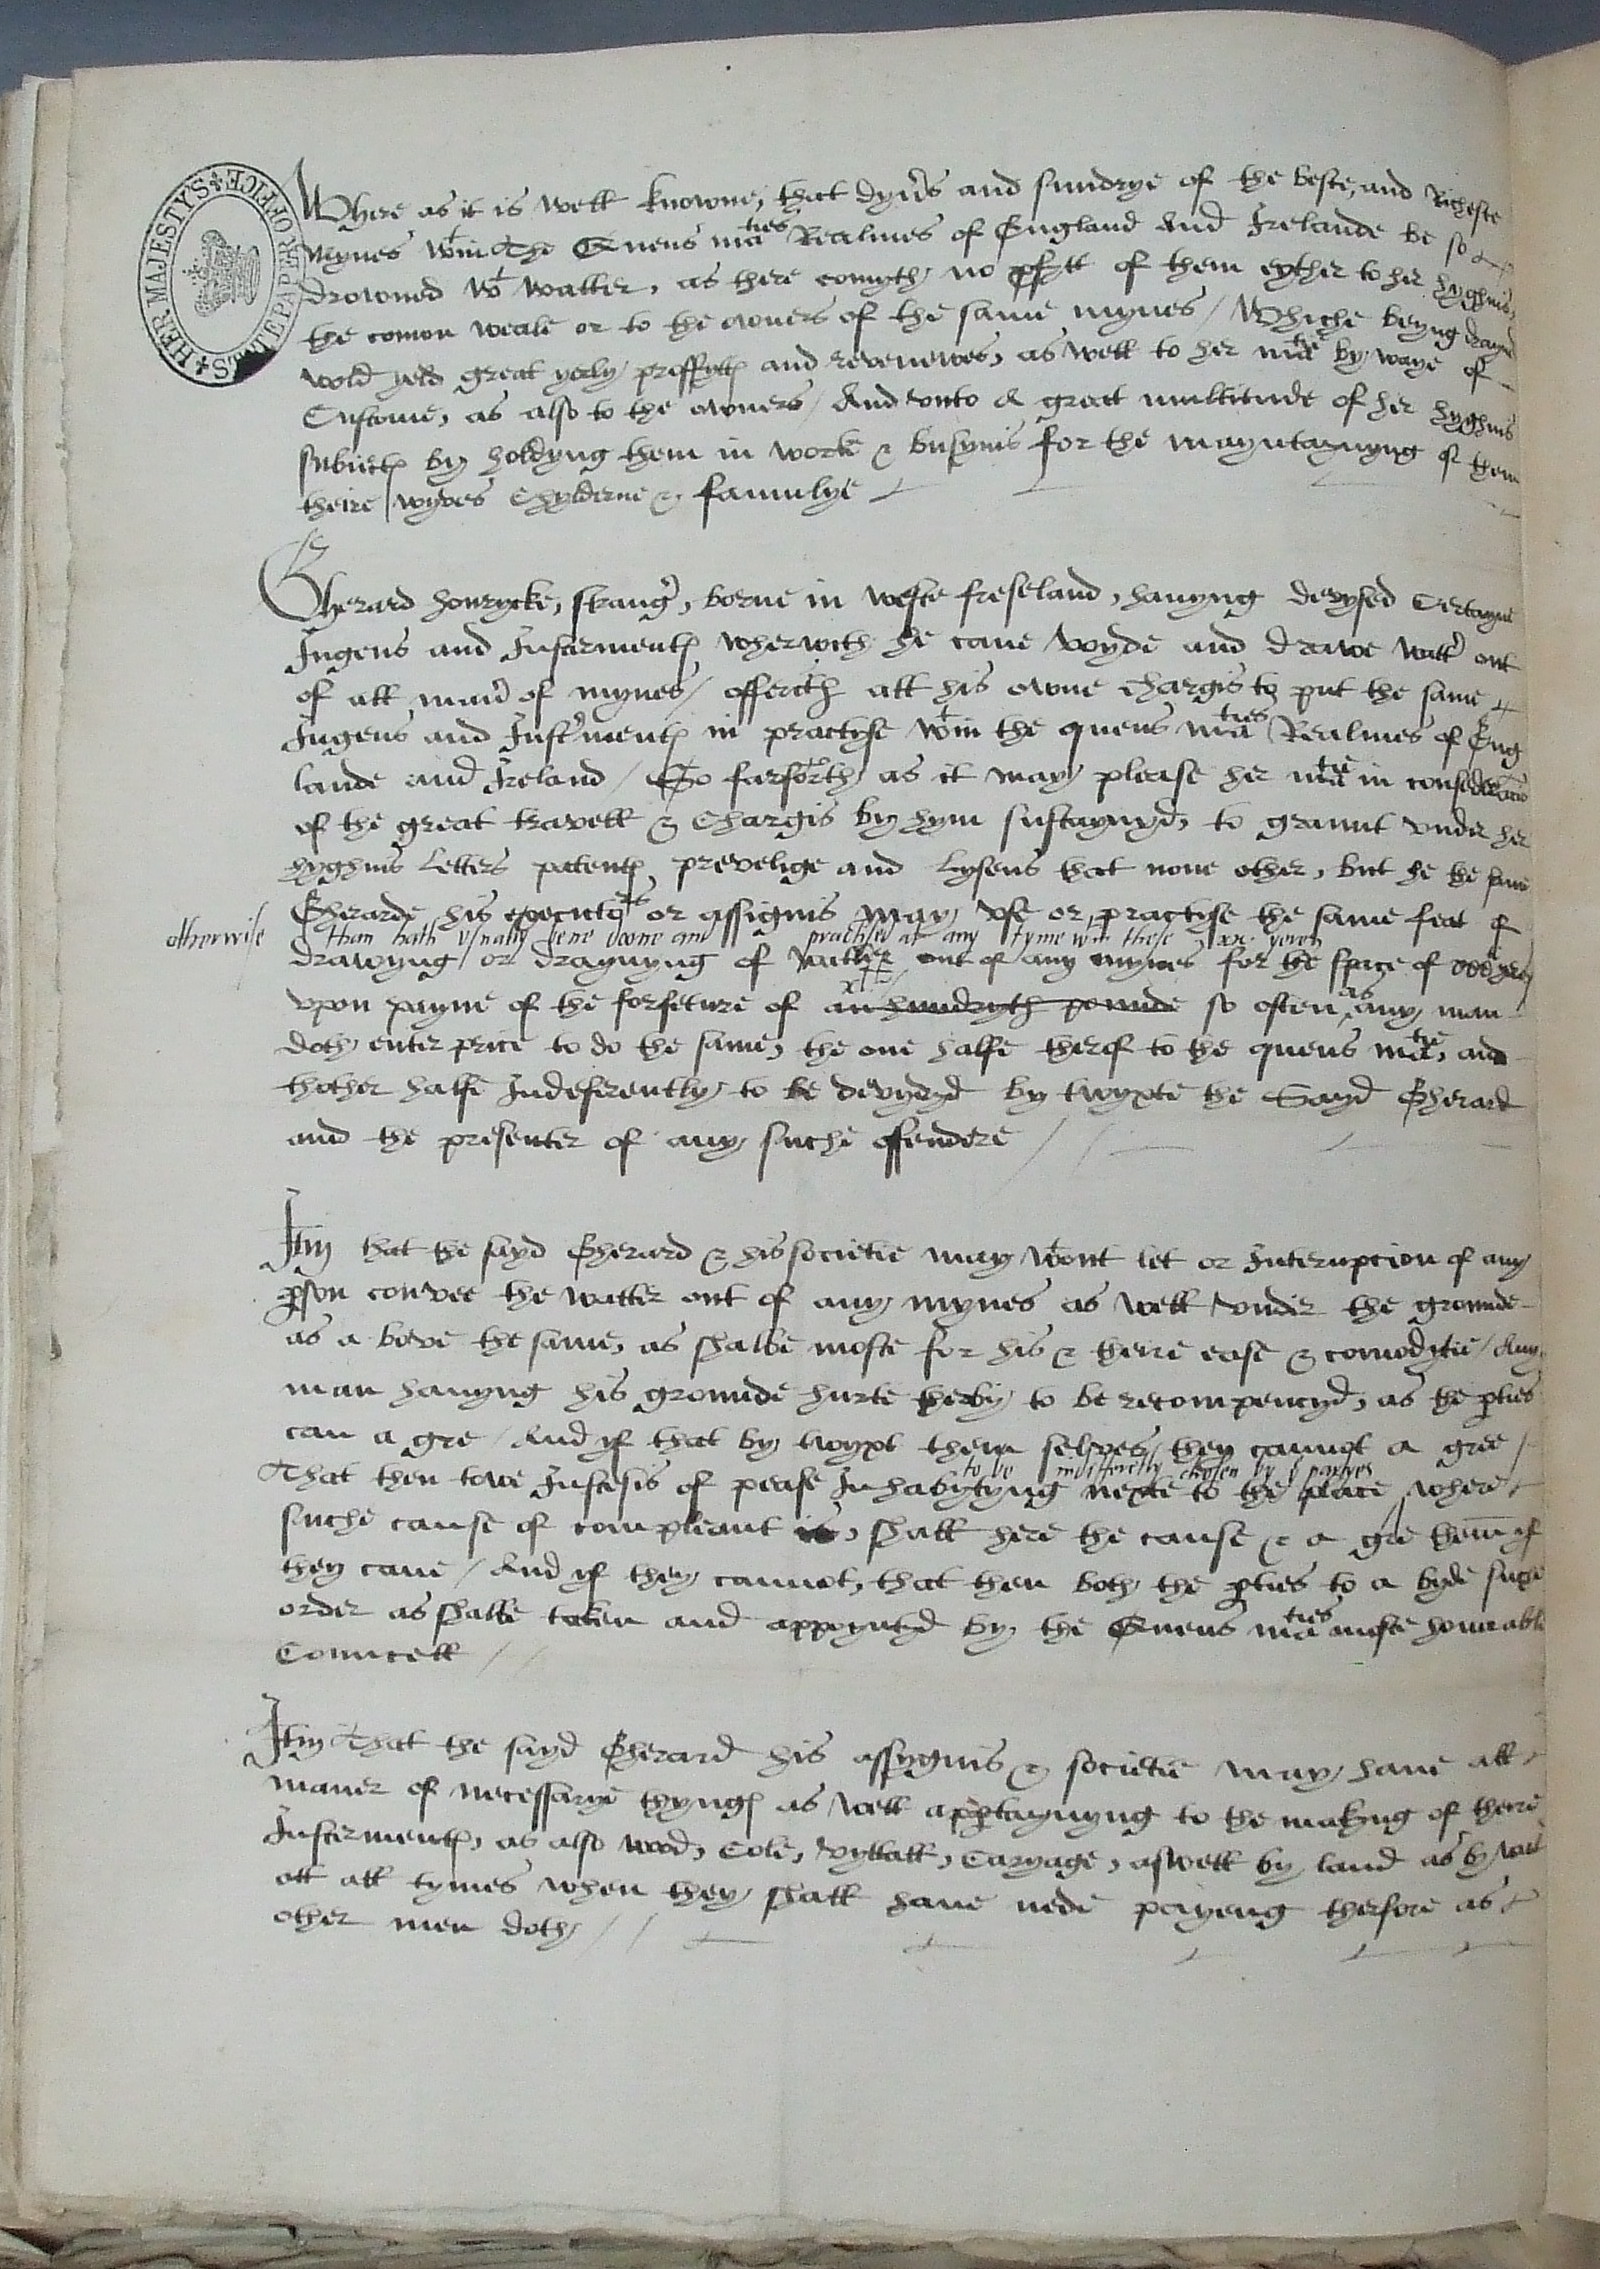 HER MAJESTY'S STATE PAPER OFFICE
Where as it is well knowne, that dyvrs and sundrye of the beste, and Richeste
Mynes wtin The Quens maties Realmes of England And Irelande be so
drowned wt watter, as there comyth no proffytt of them eyther to her hyghnis,
the comon weale or to the owners of the same mynes / Whiche beyng drayned
wold yeld great yerly proffytts and revenewes, as well to her matie by waye of
Custome, as also to the owners / And vnto a great multitude of her hyghnis
subiects by holdyng them in work & busynis for the mayntaynyng of them
theire wyves Chylderne & famulye
Gherard honrycke, strangr, borne in weste freseland, havyng devysed Certayne
Ingens and Insterments wherwith he cane voyde and drawe wattr out
of all manr of mynes / offerith att his owne chargis to put the same
Ingens and Instrments in practyse wtin the quens maties Realmes of Eng
lande and Ireland / So farforth as it may please her matie in consederacio
of the great travell & Chargis by hym sustaynyd, to graunt vnder her
hyghnis Letters patents prevelige and Lysens that none other, but he the same
Gherarde his executors or assignis may vse or practyse the same feat of
otherwise than hath vsually bene doone and practised at any tyme wtin these xx yeres
drawyng or draynyng of watter out of any mynes for the space of yeres
xl li
vpon payne of the forfeture of an hundryth pounde so often as any man
doth enter price to do the same, the one halfe therof to the quens matie, and
thother halfe Indeferently to be devydyd by twyxte the Sayd Gherard
and the presenter of any suche offendere
Itm that the sayd Gherard & his societie may wtout let or Interupcion of any
pson convee the watter out of any mynes as well vnder the grounde
as a bove the same, as shalbe moste for his & theire ease & comodytie / Any
man havyng his grounde hurte therby to be recompencyd, as the pties
can a gre / And yf that by twyxt them selves they cannot a gree /
to be indifferetly chosen by ye partyes
That then towe Justesis of pease Inhabytyng nexte to the place where
suche cause of compleant is, shall here the cause & a gre them if
they cane / And yf they cannot, that then both the pties to a byde suche
order as shalbe taken and appoyntyd by the Quens maties moste honorable
Councell
Itm That the sayd Gherard his assygnis & societie may have all
maner of necessarye thyngs as well apptaynyng to the makyng of theire
Insterments, as also wod, Cole, vyttall, Caryage, aswell by land as by watr
att all tymes when they shall have nede payeng therfore as
other men doth